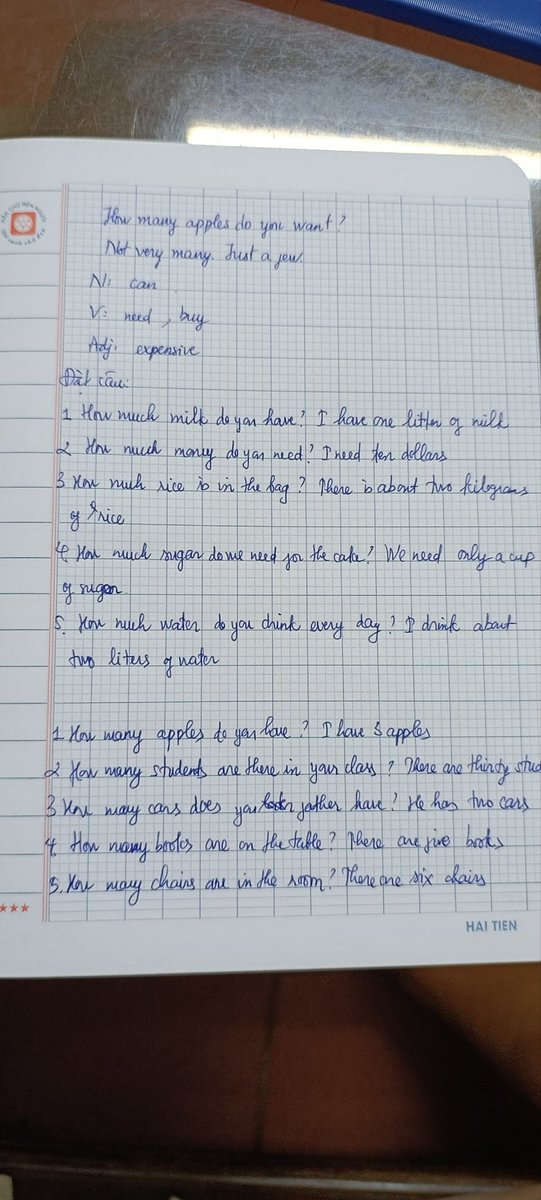 How many apples do you want?
Not very many. Just a few.
N: can
V: need, buy
Adj: expensive
Đặt câu:
1 How much milk do you have? I have one litter of milk
2 How much money do you need? I need ten dollars
3 How much rice is in the bag? There is about two kilograns
of rice
4 How much sugar do we need for the cake? We need only a cup
of sugar
5. How much water do you drink every day? I drink about
two liters of water
1 How many apples do you have? I have 3 apples
2 How many students are there in your class? There are thirty stud
3 How many cars does your father have? He has two cars
4 How many books are on the table? There are five books
5. How many chairs are in the room? There are six chairs
HAI TIEN